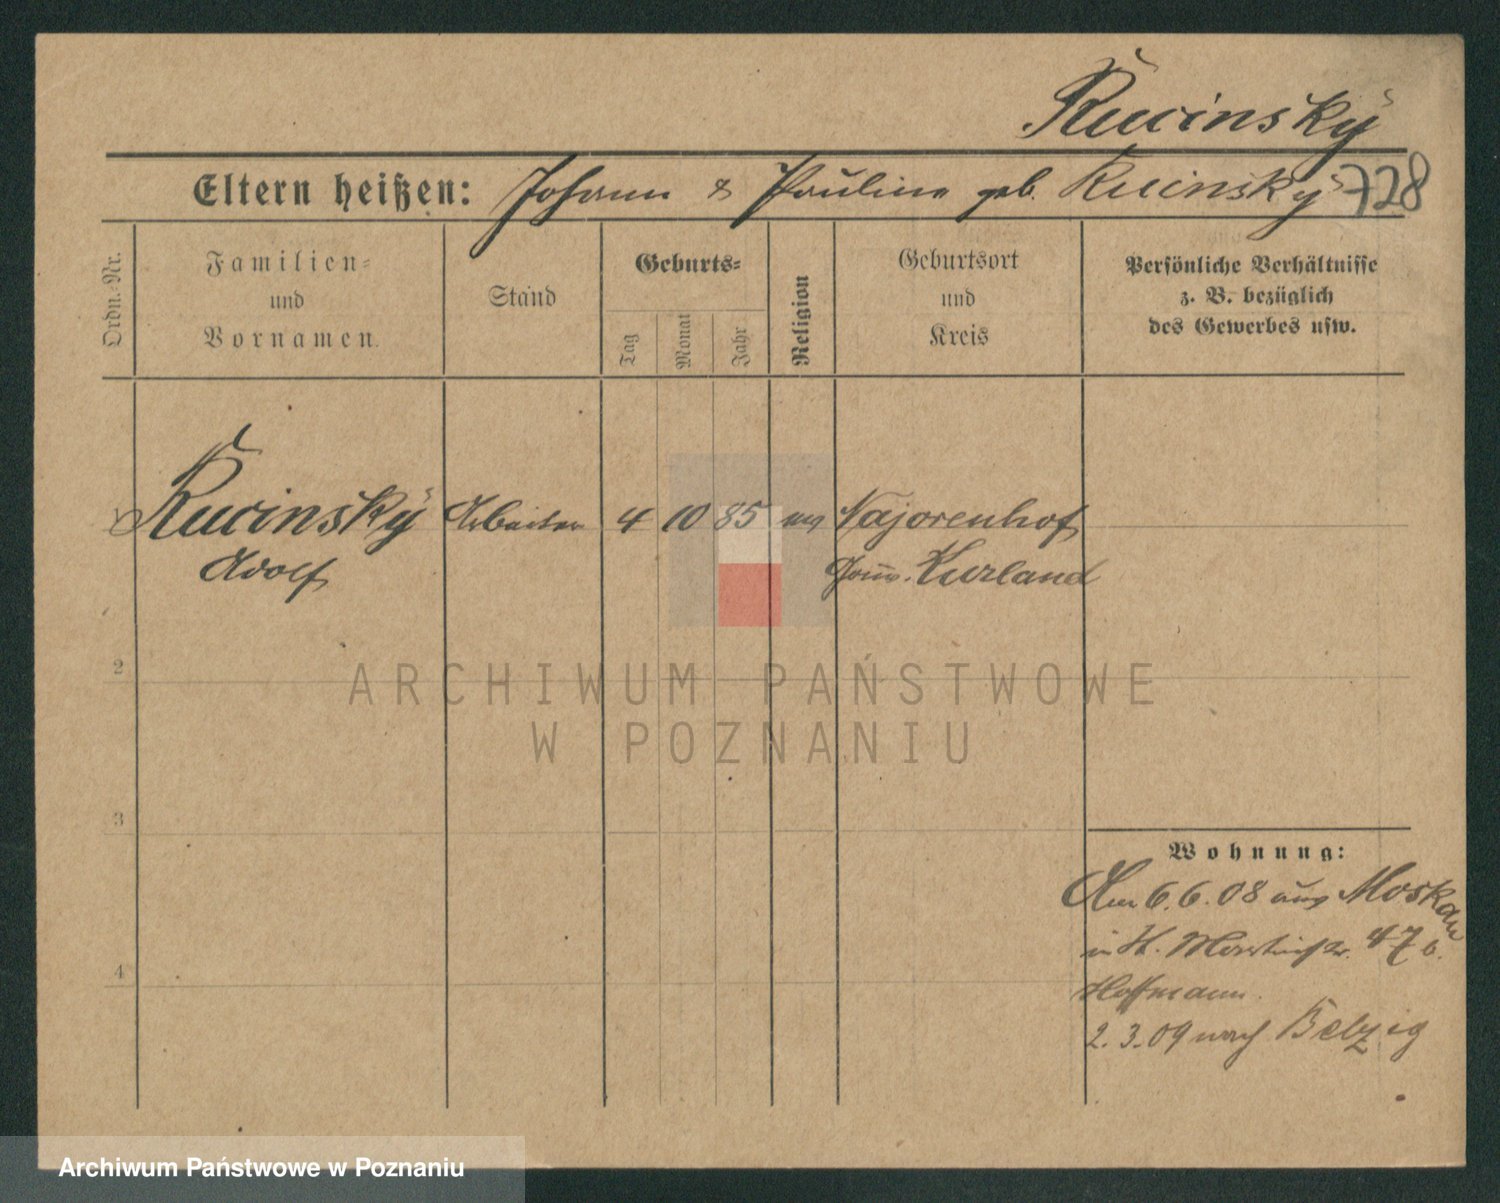 Rucinsky
Eltern heißen: Johann & Pauline geb. Rucinsky
728
Ordn.-Nr.
Familien-
und
Vornamen.
Stand
Geburts-
Tag
Monat
Jahr
Religion
Geburtsort
und
Kreis
Persönliche Verhältnisse
z. B. bezüglich
des Gewerbes usw.
Rucinsky Arbeiter 4 10 85 ev Najorenhof
Adolf Kurland
2
3
4
ARCHIWUM PAŃSTWOWE
W POZNANIU
Wohnung:
Am 6.6.08 aus Moskau
in H. 47 b.
Hoffmann.
2.3.09 nach Belzig
Archiwum Państwowe w Poznaniu